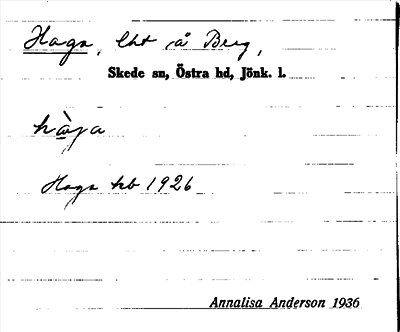 Haga, lht å Berg,
Skede sn, Östra hd, Jönk. l.
hàga
Haga kb 1926
Annalisa Anderson 1936